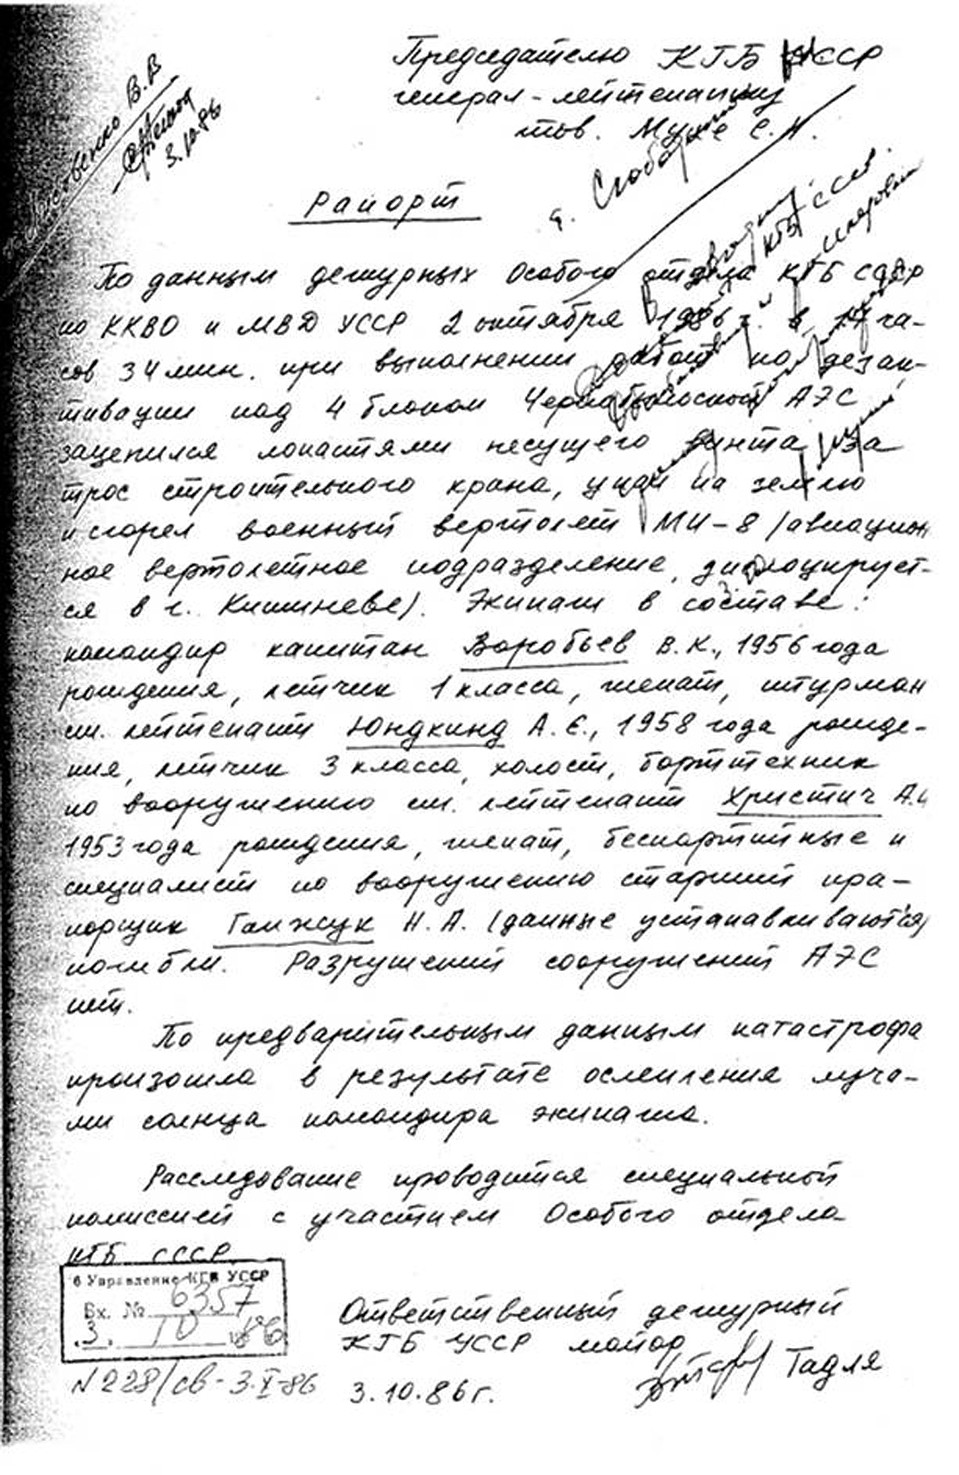 Председателю КГБ УССР
генерал-лейтенанту
тов. Мухе С.Н.
В.В
3.10.86
Рапорт
По данным дежурных Особого отдела КГБ СССР
по ККВО и МВД УССР 2 октября 1986 г. в 17 ча-
сов 34 мин. при выполнении работ по дезак-
тивации над 4 блоком Чернобыльской АЭС
зацепился лопастями несущего винта за
трос строительного крана, упал на землю
и сгорел военный вертолет МИ-8 /авиацион
ное вертолетное подразделение, дислоцирует-
ся в г. Кишиневе). Экипаж в составе:
командир капитан Воробьев В.К., 1956 года
рождения, летчик 1 класса, женат, штурман
ст. лейтенант Юндкинд А.Е., 1958 года рожде-
ния, летчик 3 класса, холост, борттехник
по вооружению ст. лейтенант Христич А.И
1953 года рождения, женат, беспартийные и
специалист по вооружению старший пра-
порщик Ганжук Н.А. (данные устанавливаются)
погибли. Разрушений сооружений АЭС
нет.
По предварительным данным катастрофа
произошла в результате ослепления луча-
ми солнца командира экипажа.
Расследование проводится специальной
комиссией с участием Особого отдела
КГБ СССР
6 Управление КГБ УССР
Вх. № 6357
3. 10 1986
N 228/св - 3.X-86
Ответственный дежурный
КГБ УССР майор
Гадля
3.10.86 г.